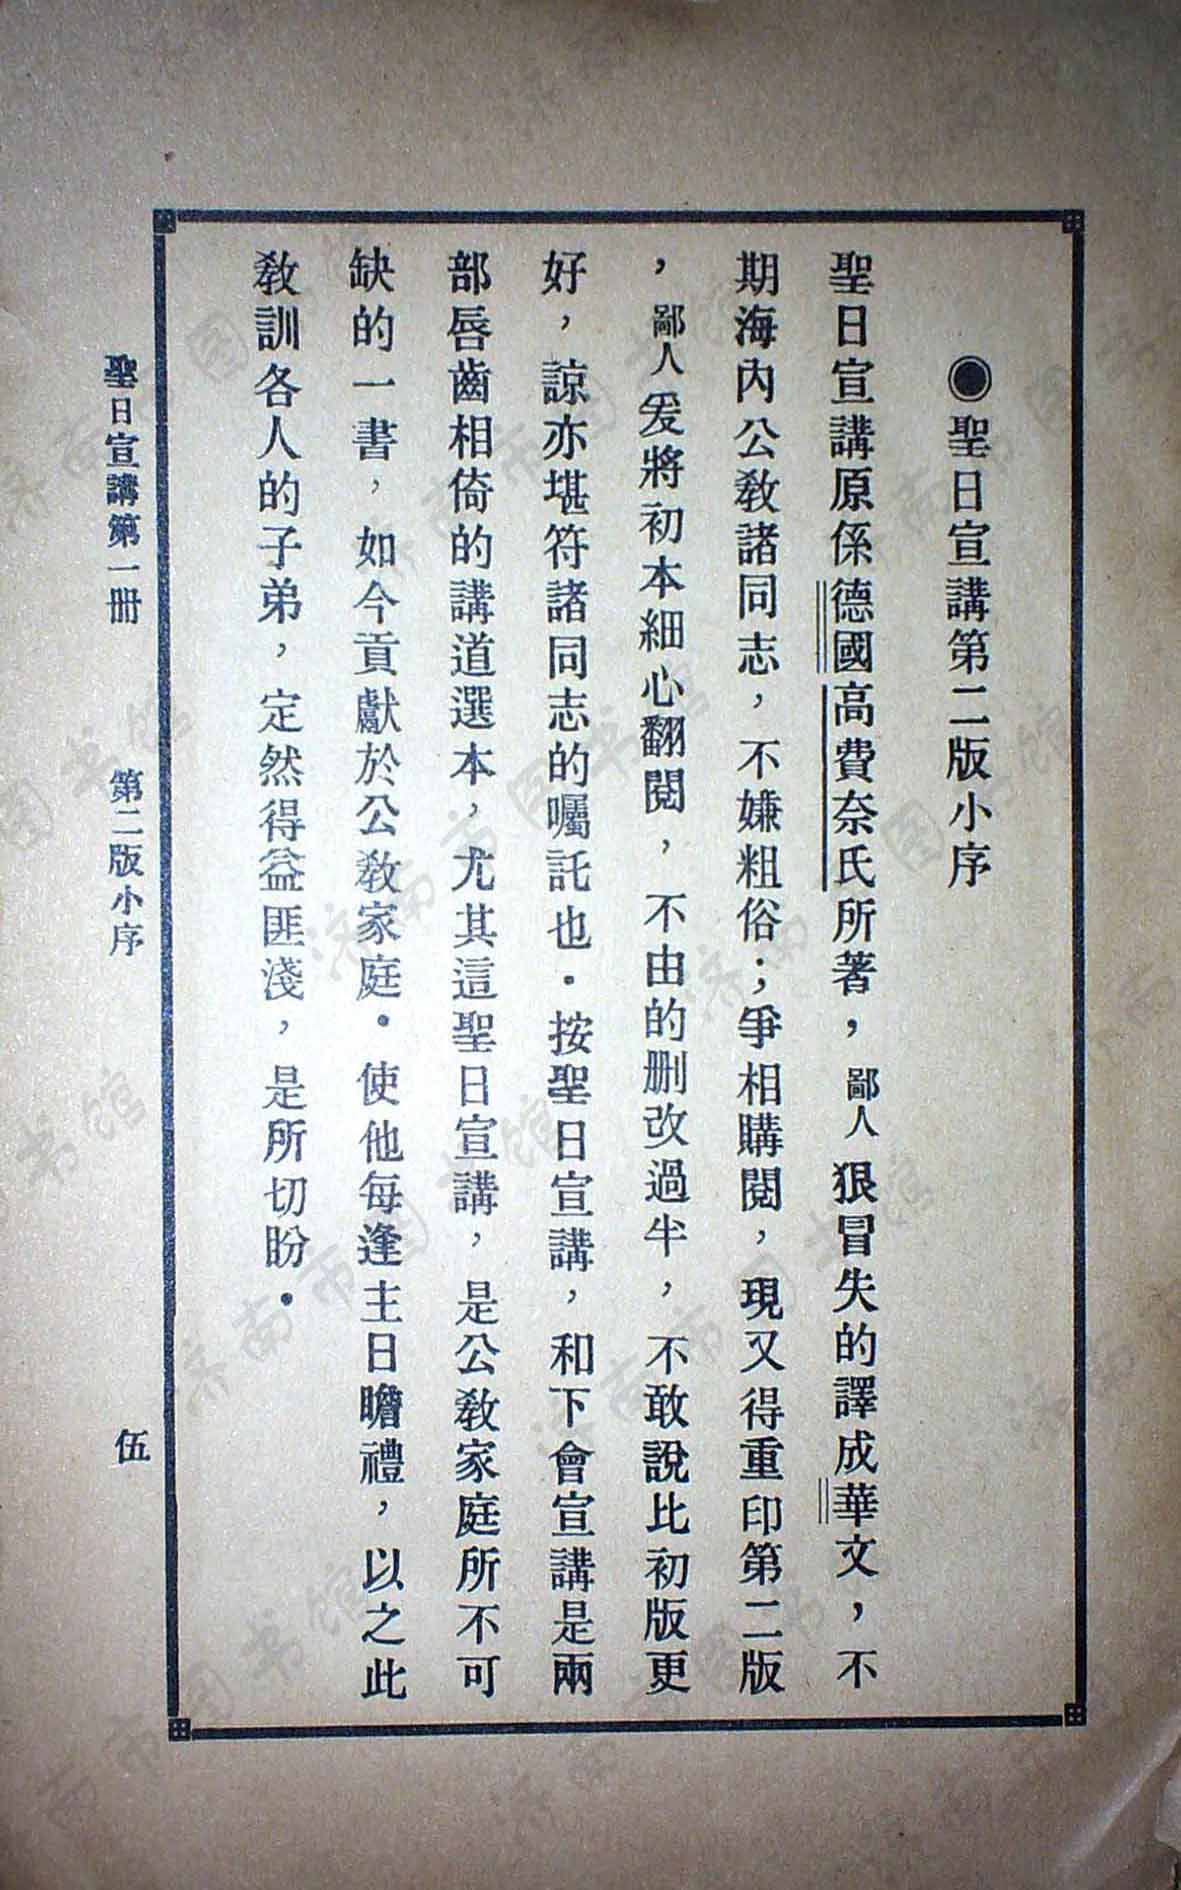 ◉聖日宣講第二版小序
聖日宣講原係德國高費奈氏所著，鄙人狠冒失的譯成華文，不
期海內公敎諸同志，不嫌粗俗；爭相購閱，現又得重印第二版
，鄙人爰將初本細心翻閱，不由的删改過半，不敢說比初版更
好，諒亦堪符諸同志的囑託也．按聖日宣講，和下會宣講是兩
部唇齒相倚的講道選本，尤其這聖日宣講，是公敎家庭所不可
缺的一書，如今貢獻於公敎家庭．使他每逢主日瞻禮，以之此
敎訓各人的子弟，定然得益匪淺，是所切盼．
聖日宣講第一册　第二版小序　伍
济南市图书馆